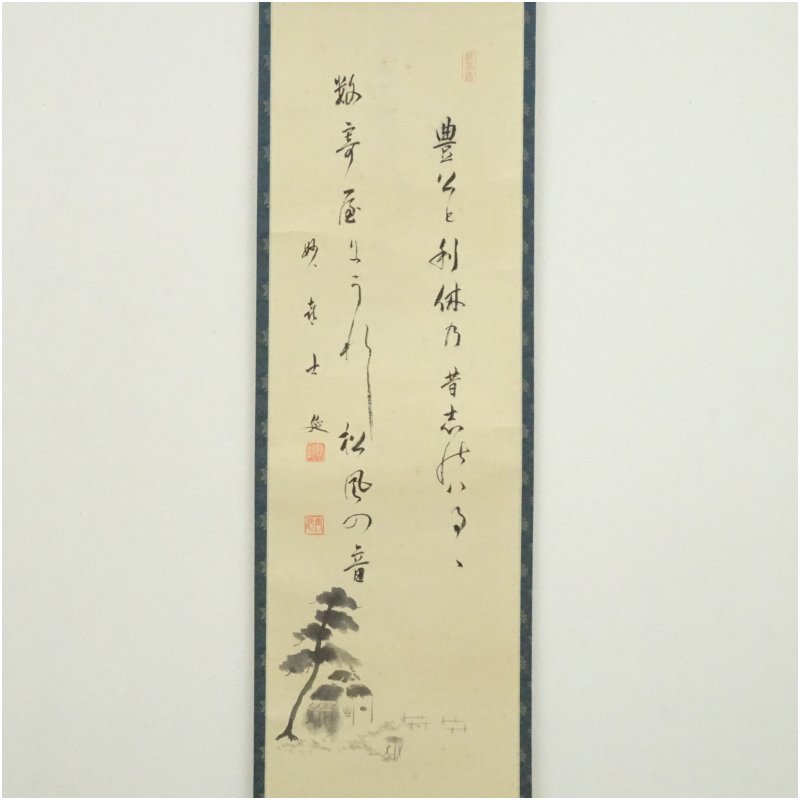 豊公と利休の昔志のはるゝ
数寄屋にうれし松風の音
妙喜士延